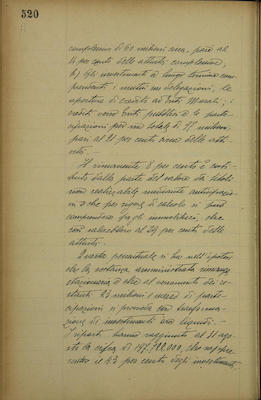 520
complessivo di 60 milioni circa, pari al
14 per cento delle attività complessive;
b) Gli investimenti a lungo termine com-
prendenti i mutui su delegazioni, le
aperture di credito ad Enti Morali, i
crediti verso Enti pubblici e le parte-
cipazioni per un totale di milioni
pari al 21 per cento circa delle atti-
vità. —
Il rimanente 8 per cento è costi-
tuito dalla parte del valore
non realizzabile mediante
che per rigore di calcolo si può
comprendere fra gli immobilizzi, che
così salirebbero al 29 per cento delle
attività.
Questa percentuale si ha nell'ipotesi
che la sostanza amministrata rimanga
stazionaria e che al versamento dei re-
stanti 23 milioni e mezzo di parte-
cipazioni si provveda con trasforma-
zione di investimenti ora liquidi. —
I riparti hanno raggiunto al 31 ago-
sto la cifra di 197.722.000, che rappre-
sentano il 43 per cento degli investimenti